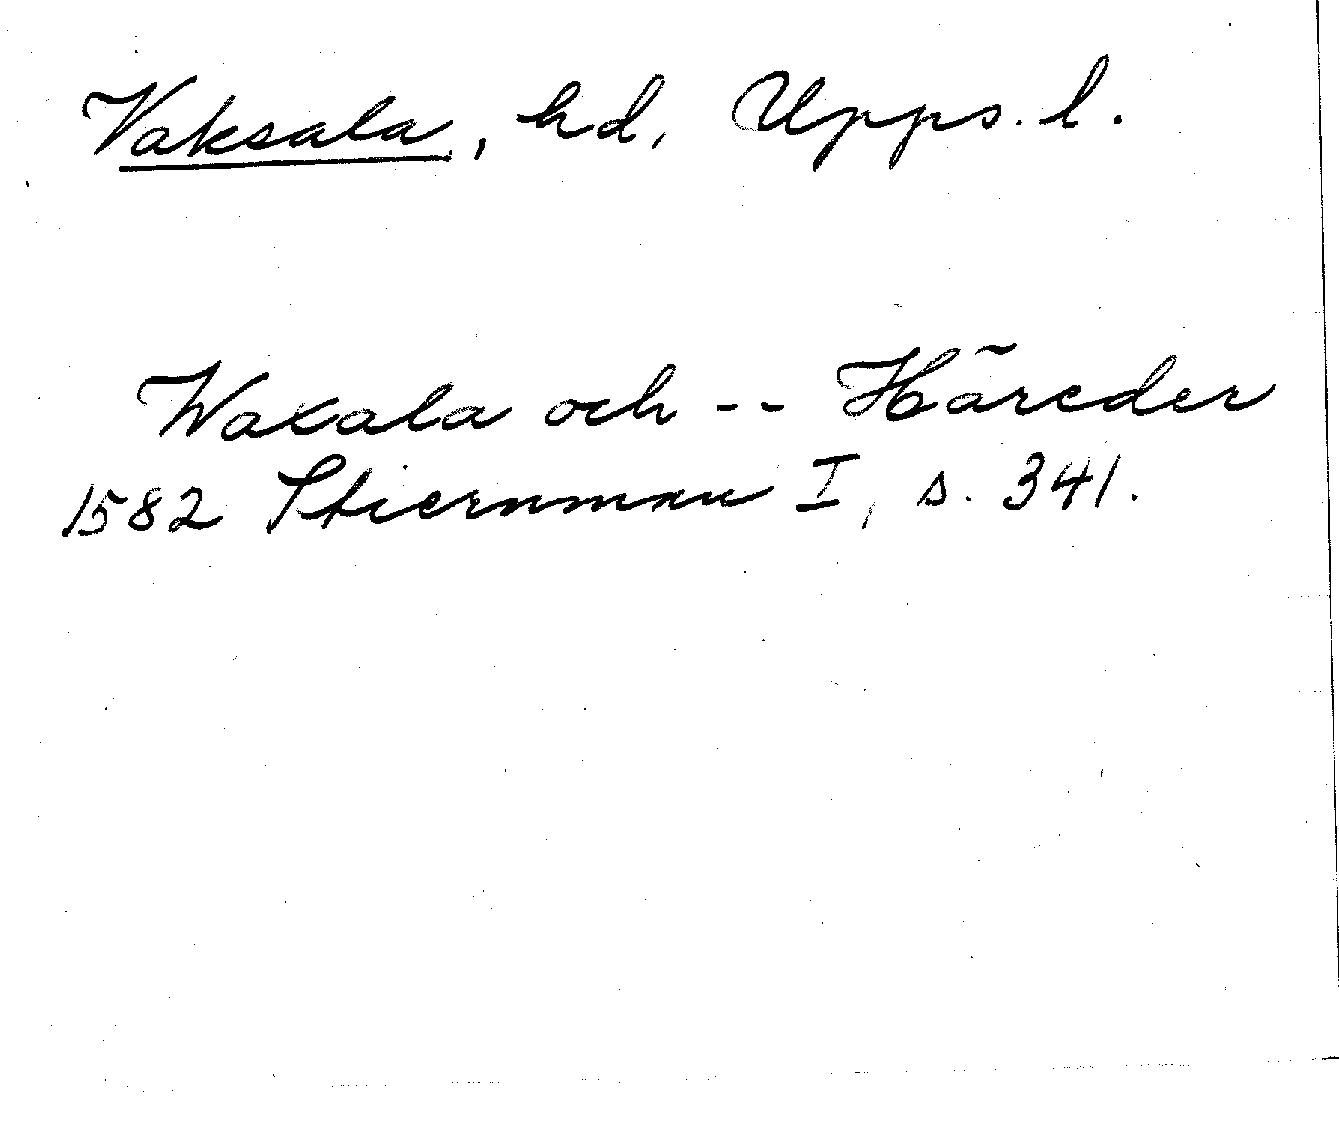 Vaksala, hd, Upps. l.
Waxala och -- Häreder
1582 Stiernman I, s. 341.